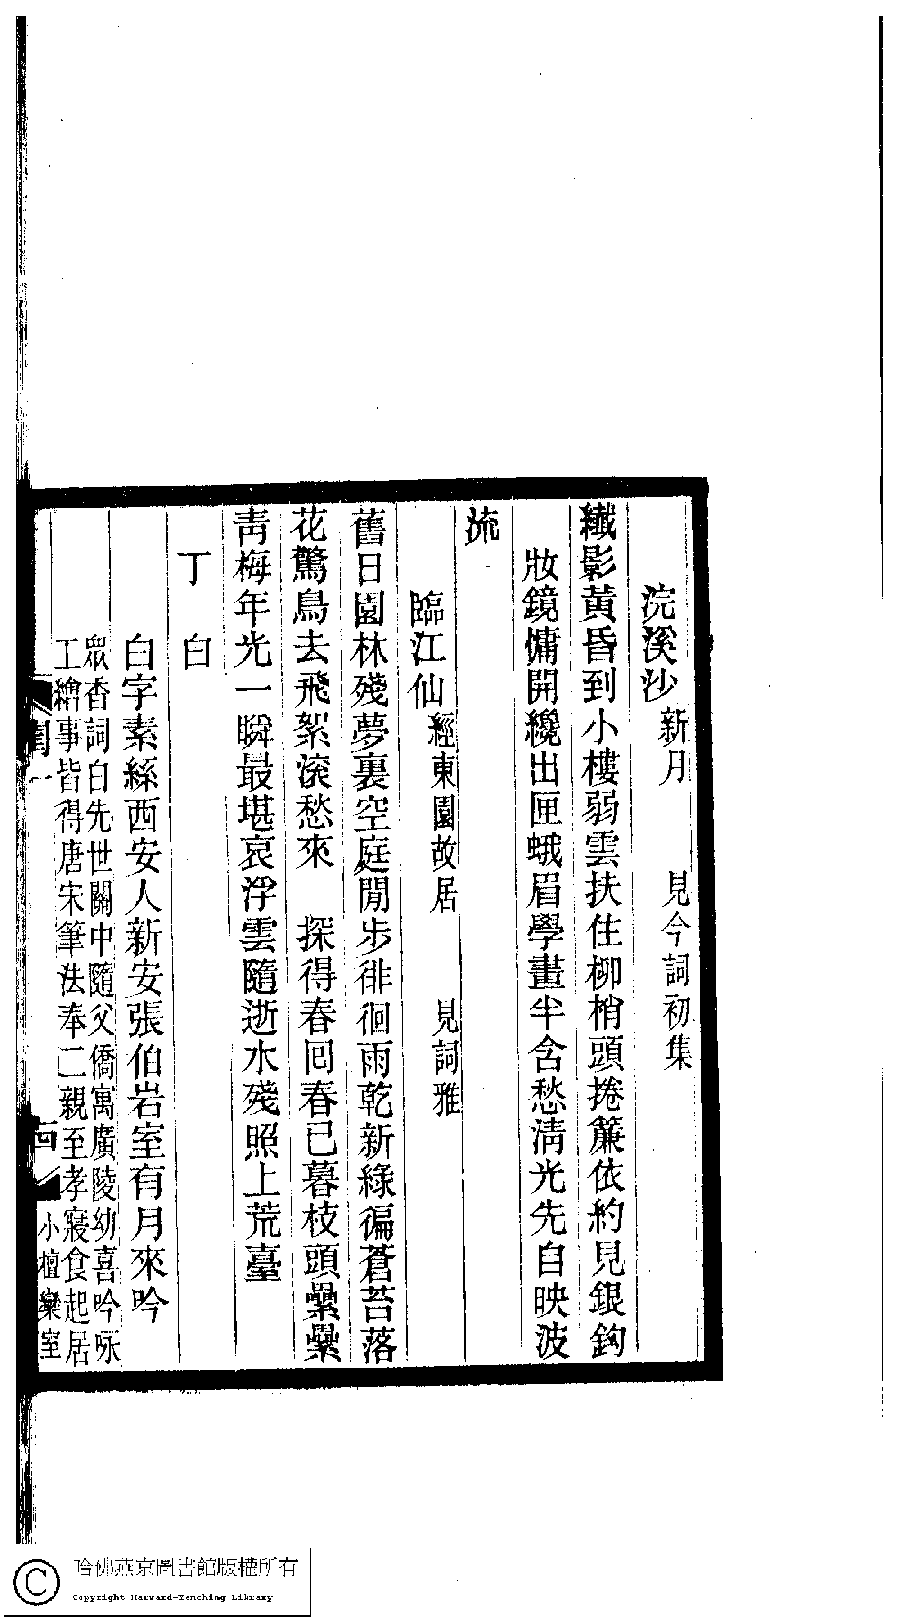 浣溪沙 新月 見今詞初集
纖影黃昏到小樓弱雲扶住柳梢頭捲簾依約見銀鉤
妝鏡慵開纔出匣蛾眉學畫半含愁清光先自映波
流
臨江仙 經東園故居 見詞雅
舊日園林殘夢裏空庭閒步徘徊雨乾新綠徧蒼苔落
花驚鳥去飛絮滾愁來 探得春囘春已暮枝頭纍纍
青梅年光一瞬最堪哀浮雲隨逝水殘照上荒臺
丁白
白字素絲西安人新安張伯岩室有月來吟
眾香詞白先世關中隨父僑寓廣陵幼喜吟咏
工繪事皆得唐宋筆法奉二親至孝寢食起居
小檀欒室
哈佛燕京圖書館版權所有
Copyright Harvard-Yenching Library